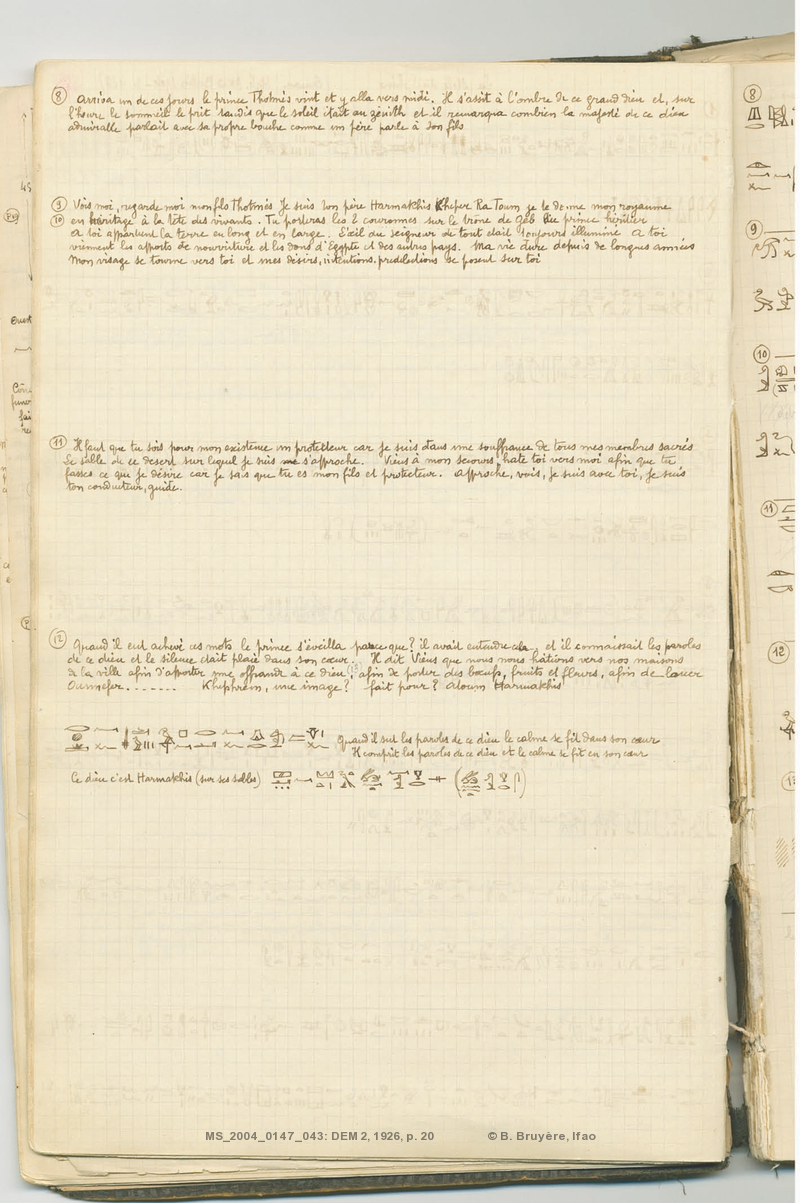 ⑧ Arriva un de ces jours le prince Thotmès vint et y alla vers midi. Il s'assit à l'ombre de ce grand dieu et, sur
l'heure le sommeil le prit tandis que le soleil était au zénith et il remarqua combien la majesté de ce dieu
admirable parlait avec sa propre bouche comme un père parle à son fils
⑨ Vois moi, regarde moi mon fils Thotmès Je suis ton père Harmakhis Kheper Ra Toum je te donne mon royaume
⑩ en héritage à la tête des vivants. Tu porteras les 2 couronnes sur le trône de Geb le prince héritier
A toi appartient la terre en long et en large. L'œil du seigneur de tout était toujours illuminé A toi
viennent les apports de nourriture et les dons d'Egypte et des autres pays. Ma vie dure depuis de longues années
Mon visage se tourne vers toi et mes désirs, intentions, prédilections se posent sur toi
⑪ Il faut que tu sois pour mon existence un protecteur car je suis dans une souffrance de tous mes membres sacrés
Le sable de ce desert sur lequel je suis s'approche. Viens à mon secours, hate toi vers moi afin que tu
fasses ce que je désire car je sais que tu es mon fils et protecteur. Approche, vois, je suis avec toi, je suis
ton conducteur, guide.
⑫ Quand il eut achevé ces mots, le prince s'éveilla parce que? il avait entendu cela, et il connaissait les paroles
de ce dieu et le silence était placé dans son cœur. Il dit Viens que nous nous hâtions vers nos maisons
de la ville afin d'apporter une offrande à ce dieu, afin de porter des bœufs, fruits et fleurs, afin de louer
Ounnefer....... Khephren, une image? fait pour? Atoum Harmakhis
Quand il sut les paroles de ce dieu le calme se fit dans son cœur
Il comprit les paroles de ce dieu et le calme se fit en son cœur
Ce dieu c'est Harmakhis (sur ses sables)
⑧
⑨
⑩
⑪
⑫
MS_2004_0147_043: DEM 2, 1926, p. 20 © B. Bruyère, Ifao